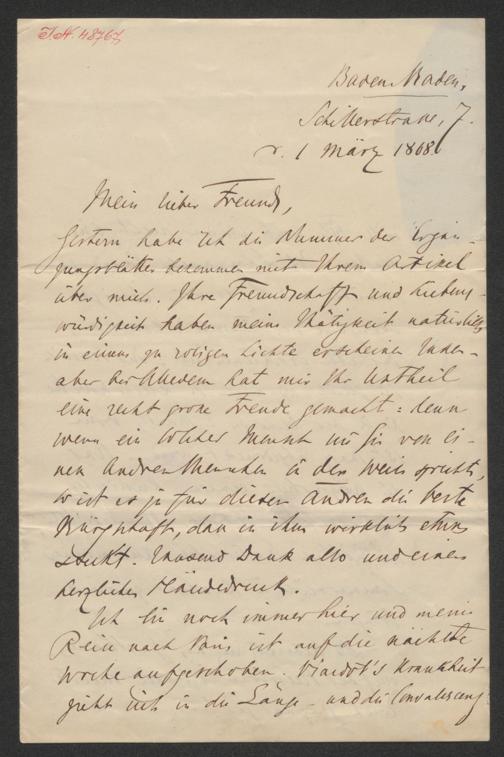 I.N. 48767
Baden-Baden,
Schillerstrasse, 7.
d. 1 März 1868
Mein lieber Freund,
Gestern habe ich die Nummer der Ergän-
zungsblätter bekommen mit Ihrem Artikel
über mich. Ihre Freundschaft und Liebens-
würdigkeit haben meine Thätigkeit natürlich
in einem zu rosigen Lichte erscheinen lassen –
aber bei Alledem hat mir Ihr Urtheil
eine recht grosse Freude gemacht: denn
wenn ein solcher Mensch wie Sie von ei-
nem Andren Menschen in der Weise spricht,
so ist es ja für diesen Andren die beste
Bürgschaft, dass in ihm wirklich etwas
steckt. Tausend Dank also und einen
herzlichen Händedruck.
Ich bin noch immer hier und meine
Reise nach Paris ist auf die nächste
Woche aufgeschoben. Viardot's Krankheit
zieht sich in die Länge – und die Convalescenz